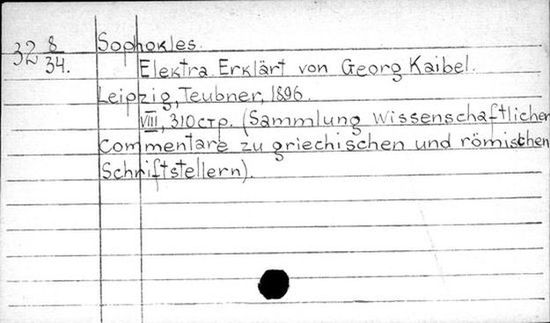 32 8/34.
Sophokles.
Elektra Erklärt von Georg Kaibel.
Leipzig, Teubner, 1896.
VIII, 310 стр. (Sammlung wissenschaftlicher
Commentare zu griechischen und römischen
Schriftstellern).